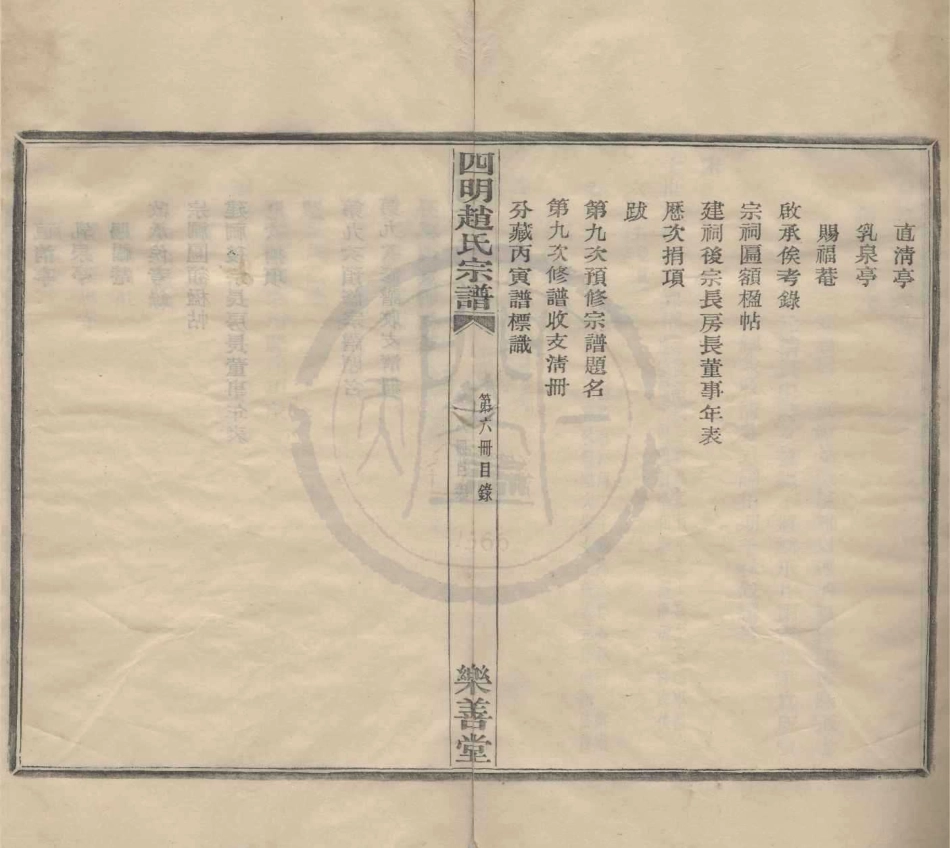 直清亭
乳泉亭
賜福菴
啟承俟考錄
宗祠匾額楹帖
建祠後宗長房長董事年表
歷次捐項
跋
第九次預修宗譜題名
第九次修譜收支清冊
分藏丙寅譜標識
四明趙氏宗譜
第六冊目錄
樂善堂